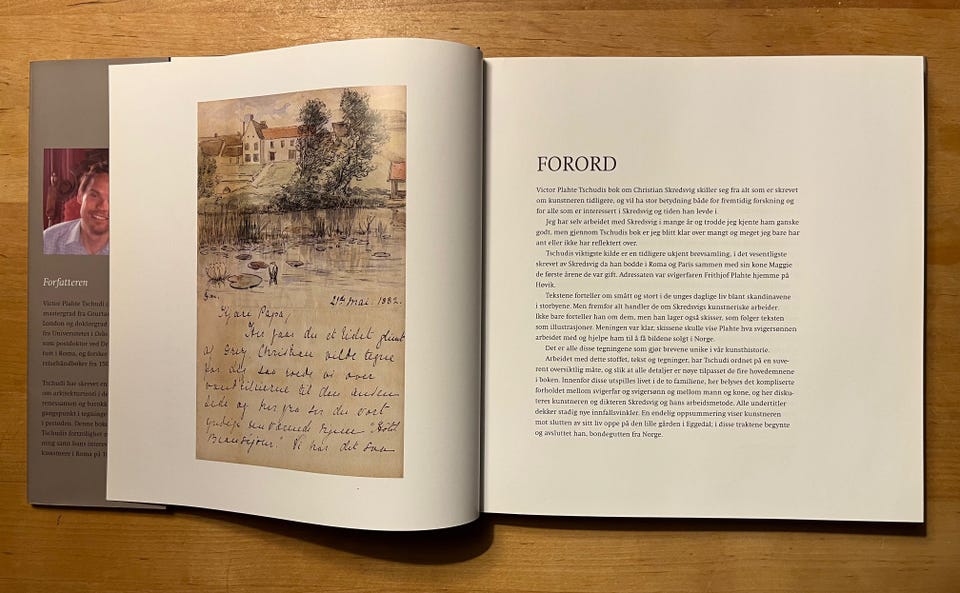 Forfatteren
Victor Plahte Tschudi
mastergrad fra
London og doktorgrad
fra Universitetet i Oslo
som postdoktor ved
i Roma, og forsker
reisehåndbøker fra
Tschudi har skrevet en
om arkitekturteori i
renessansen og
i perioden. Denne
Tschudis fortrolighet
ning samt hans
kunstnere i Roma på
21de Mai. 1882.
Kjære Papa,
Her faar du et lidet glimt
af Grez, Christian vilde tegne
for dig saa rode vi over
vandliljerne til den anden
side og herfra ser du vort
"Hôtel
Beauséjour." Vi har det saa
FORORD
Victor Plahte Tschudis bok om Christian Skredsvig skiller seg fra alt som er skrevet
om kunstneren tidligere, og vil ha stor betydning både for fremtidig forskning og
for alle som er interessert i Skredsvig og tiden han levde i.
Jeg har selv arbeidet med Skredsvig i mange år og trodde jeg kjente ham ganske
godt, men gjennom Tschudis bok er jeg blitt klar over mangt og meget jeg bare har
ant eller ikke har reflektert over.
Tschudis viktigste kilde er en tidligere ukjent brevsamling, i det vesentligste
skrevet av Skredsvig da han bodde i Roma og Paris sammen med sin kone Maggie
de første årene de var gift. Adressaten var svigerfaren Frithjof Plahte hjemme på
Høvik.
Tekstene forteller om smått og stort i de unges daglige liv blant skandinavene
i storbyene. Men fremfor alt handler de om Skredsvigs kunstneriske arbeider.
Ikke bare forteller han om dem, men han lager også skisser, som følger teksten
som illustrasjoner. Meningen var klar, skissene skulle vise Plahte hva svigersønnen
arbeidet med og hjelpe ham til å få bildene solgt i Norge.
Det er alle disse tegningene som gjør brevene unike i vår kunsthistorie.
Arbeidet med dette stoffet, tekst og tegninger, har Tschudi ordnet på en suve-
rent oversiktlig måte, og slik at alle detaljer er nøye tilpasset de fire hovedemnene
i boken. Innenfor disse utspilles livet i de to familiene, her belyses det kompliserte
forholdet mellom svigerfar og svigersønn og mellom mann og kone, og her disku-
teres kunstneren og dikteren Skredsvig og hans arbeidsmetode. Alle undertitler
dekker stadig nye innfallsvinkler. En endelig oppsummering viser kunstneren
mot slutten av sitt liv oppe på den lille gården i Eggedal; i disse traktene begynte
og avsluttet han, bondegutten fra Norge.